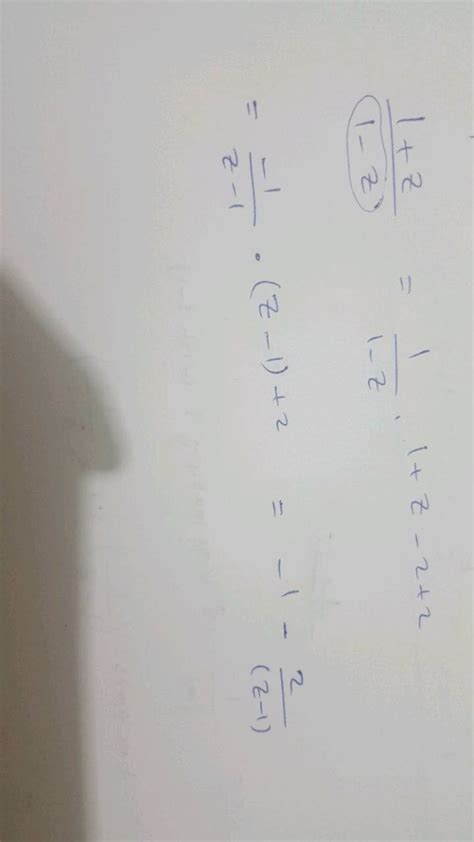 (1+z)/(1-z) = 1/(1-z) · 1+z-2+2
= -1/(z-1) · (z-1)+2 = -1 - 2/(z-1)